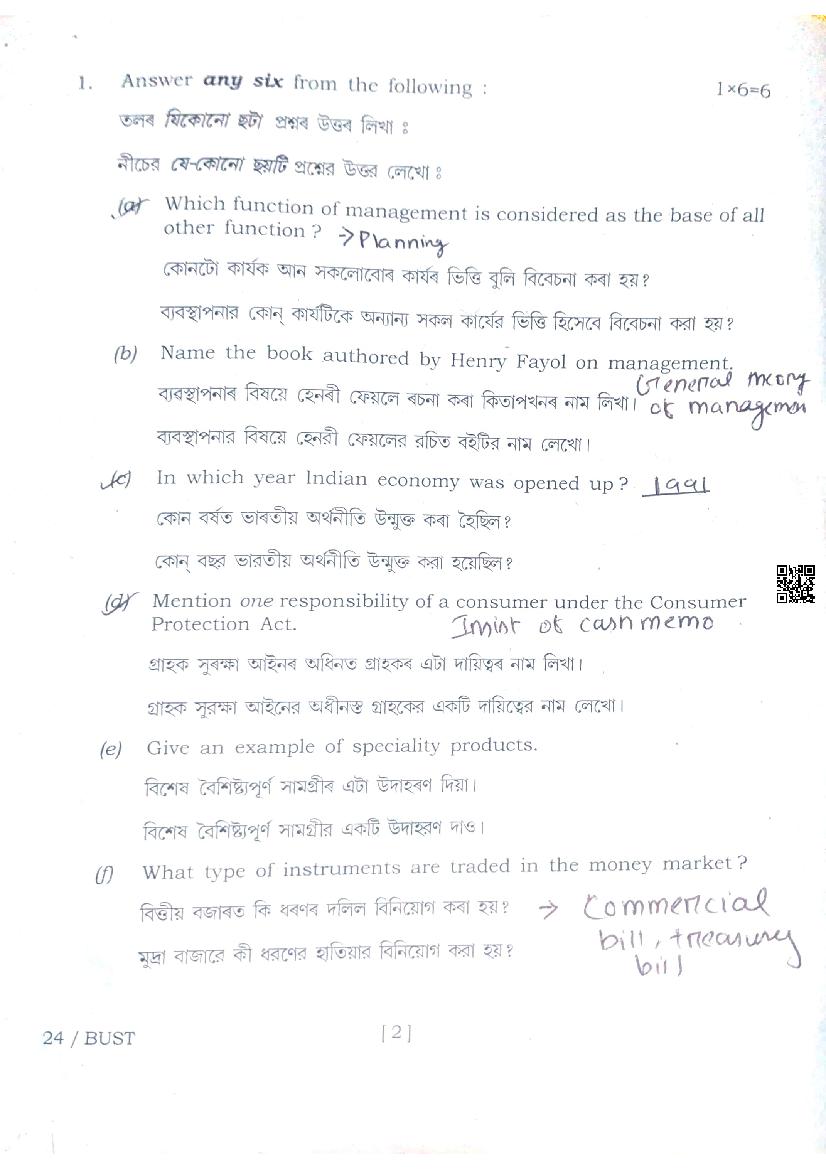 1. Answer any six from the following : 1×6=6
তলৰ যিকোনো ছটা প্ৰশ্নৰ উত্তৰ লিখা :
নীচের যে-কোনো ছয়টি প্রশ্নের উত্তর লেখো :
(a) Which function of management is considered as the base of all
other function ? → Planning
কোনটো কাৰ্যক আন সকলোবোৰ কাৰ্যৰ ভিত্তি বুলি বিবেচনা কৰা হয়?
ব্যবস্থাপনার কোন্ কার্যটিকে অন্যান্য সকল কার্যের ভিত্তি হিসেবে বিবেচনা করা হয়?
(b) Name the book authored by Henry Fayol on management.
General theory
ব্যৱস্থাপনাৰ বিষয়ে হেনৰী ফেয়লে ৰচনা কৰা কিতাপখনৰ নাম লিখা। of managemen
ব্যবস্থাপনার বিষয়ে হেনরী ফেয়লের রচিত বইটির নাম লেখো।
(c) In which year Indian economy was opened up ? 1991
কোন বৰ্ষত ভাৰতীয় অৰ্থনীতি উন্মুক্ত কৰা হৈছিল?
কোন্ বছর ভারতীয় অর্থনীতি উন্মুক্ত করা হয়েছিল?
(d) Mention one responsibility of a consumer under the Consumer
Protection Act. Insist of cash memo
গ্ৰাহক সুৰক্ষা আইনৰ অধিনত গ্ৰাহকৰ এটা দায়িত্বৰ নাম লিখা।
গ্রাহক সুরক্ষা আইনের অধীনস্ত গ্রাহকের একটি দায়িত্বের নাম লেখো।
(e) Give an example of speciality products.
বিশেষ বৈশিষ্ট্যপূৰ্ণ সামগ্ৰীৰ এটা উদাহৰণ দিয়া।
বিশেষ বৈশিষ্ট্যপূর্ণ সামগ্রীর একটি উদাহরণ দাও।
(f) What type of instruments are traded in the money market ?
বিত্তীয় বজাৰত কি ধৰণৰ দলিল বিনিয়োগ কৰা হয়? → Commercial
bill, treasury
মুদ্রা বাজারে কী ধরণের হাতিয়ার বিনিয়োগ করা হয়? bill
24 / BUST [ 2 ]